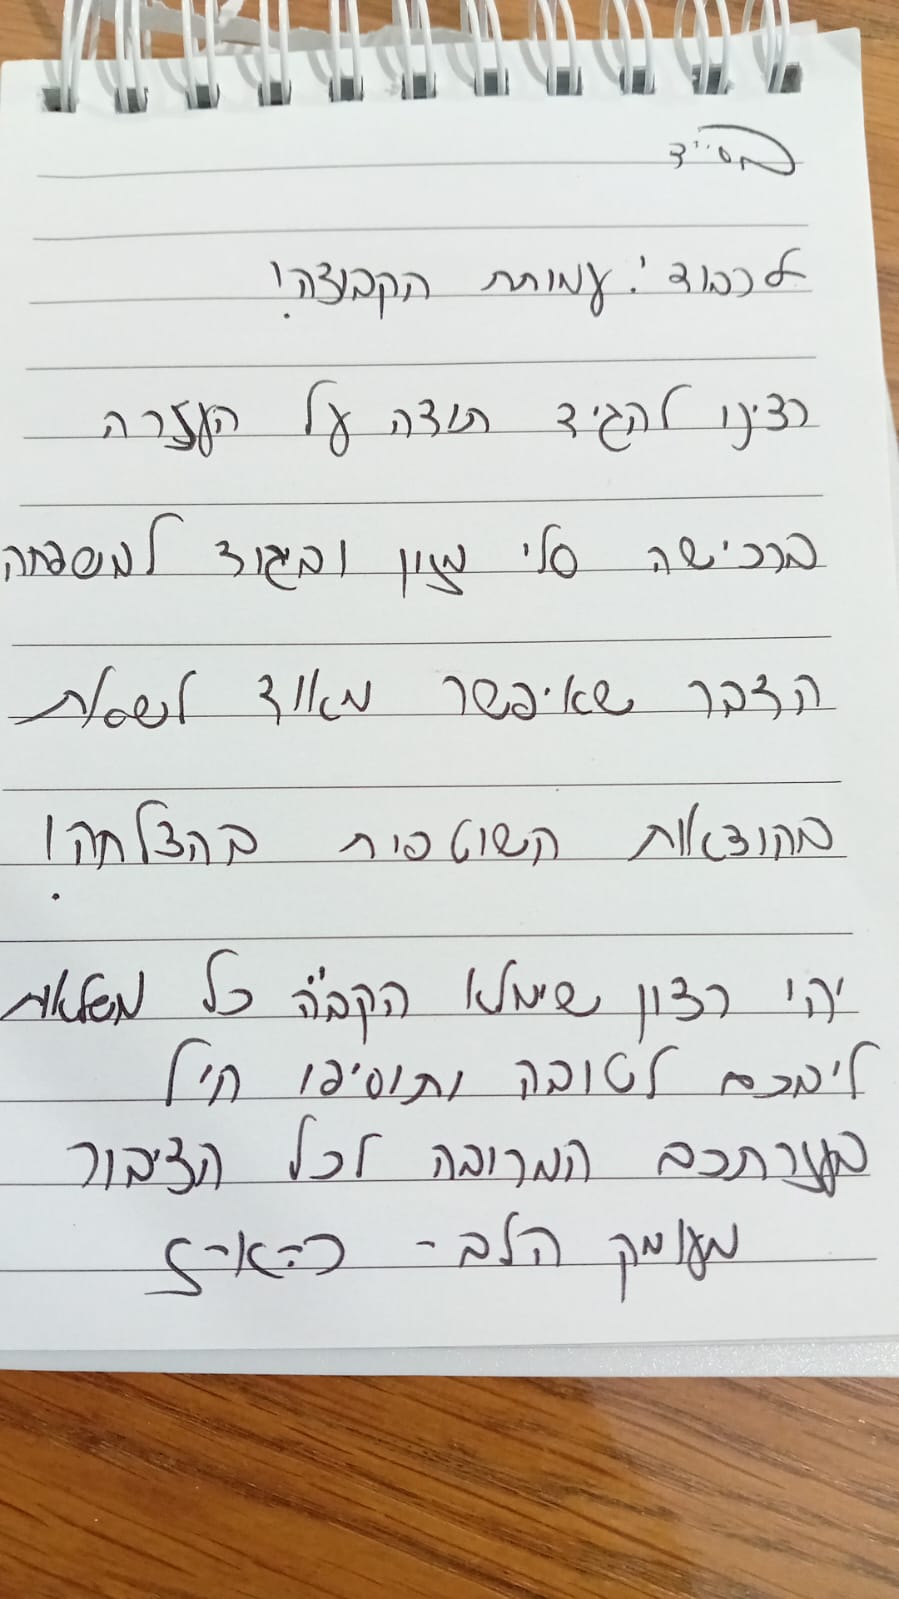 בס"ד
לכבוד: עמותת הקבוצה!
רצינו להגיד תודה על העזרה
ברכישה סלי מזון וביגוד למשפחה
הדבר שאיפשר מאוד לשמחת
בהוצאות השוטפות בהצלחה!
יהי רצון שימלא הקב"ה כל משאלות
ליבכם לטובה ותוסיפו חיל
בעזרתכם המרובה לכל הציבור
מעומק הלב -